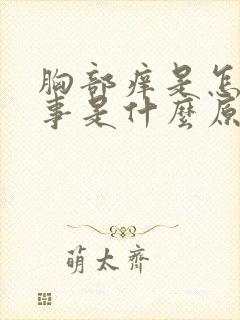 胸部痒是怎
事是什麼原
萌太齐